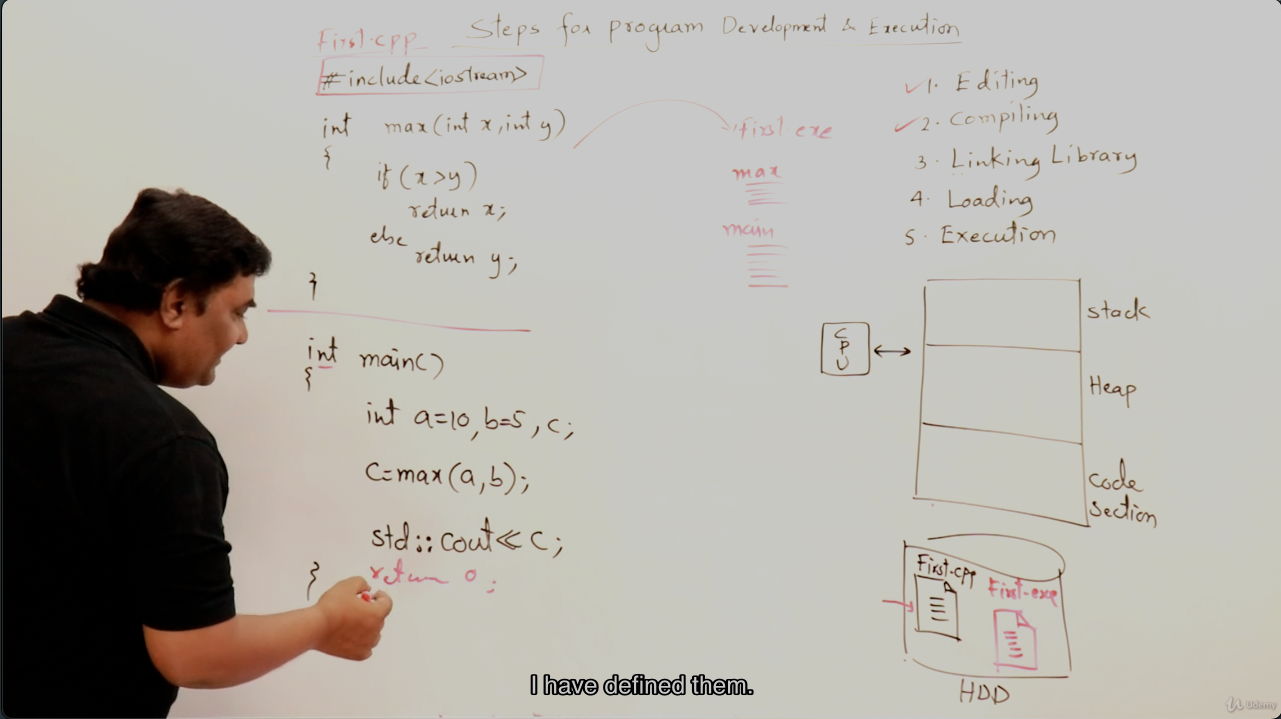 Steps for program Development & Execution
First.cpp
#include<iostream>
int max(int x, int y)
{
if (x>y)
return x;
else
return y;
}
int main()
{
int a=10, b=5, c;
C=max(a,b);
std::cout<< c;
return 0;
}
First exe
max
main
1. Editing
2. Compiling
3. Linking Library
4. Loading
5. Execution
CPU
stack
Heap
code
section
First.cpp
First.exe
HDD
I have defined them.
Udemy